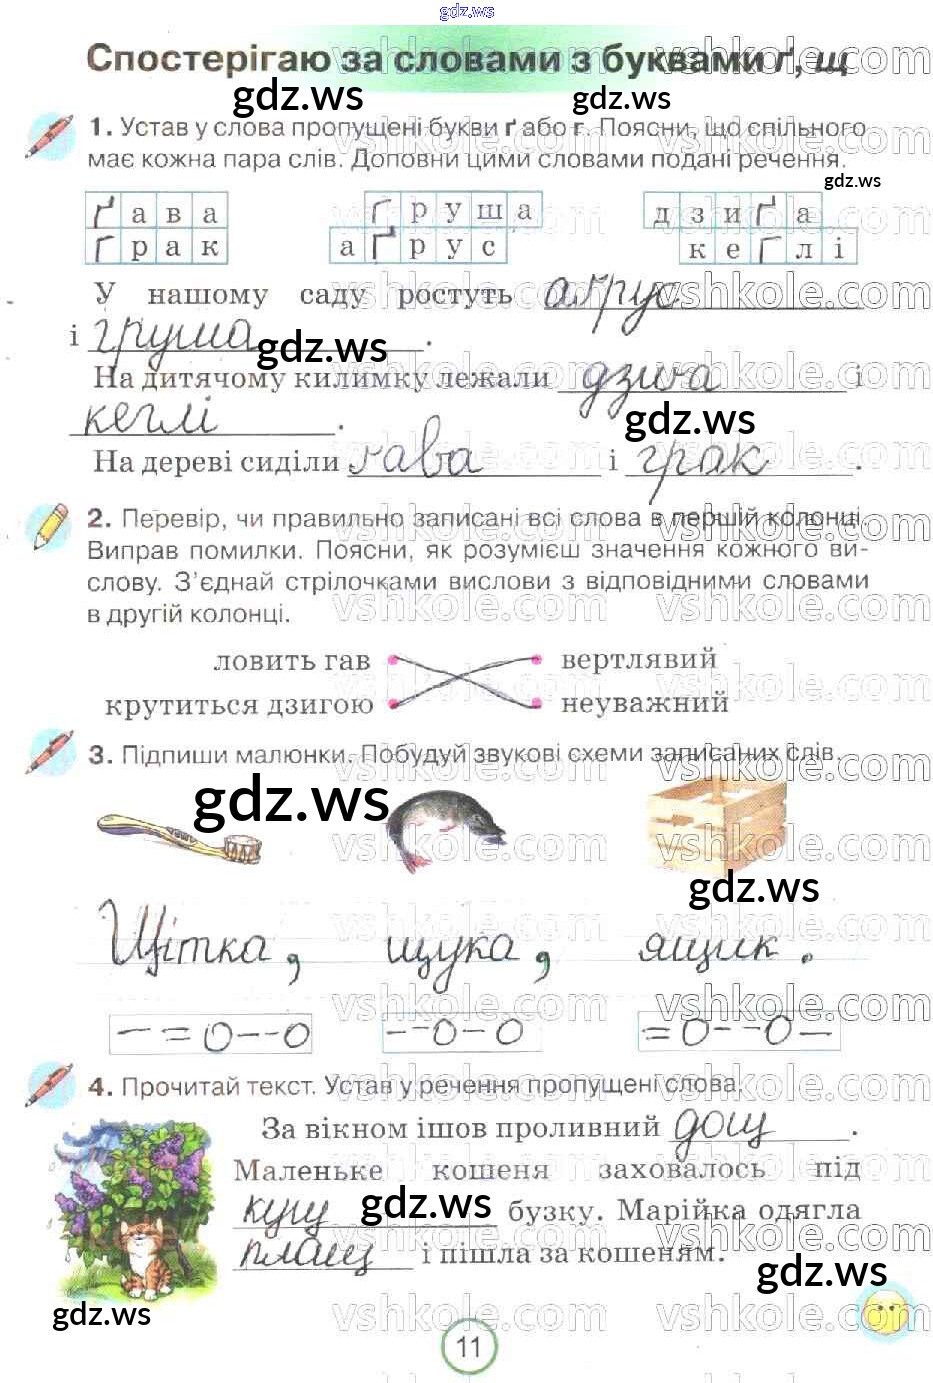 gdz.ws
Спостерігаю за словами з буквами ґ, щ
gdz.ws gdz.ws
1. Устав у слова пропущені букви ґ або г. Поясни, що спільного
має кожна пара слів. Доповни цими словами подані речення.
gdz.ws
ґ а в а г р у ш а д з и ґ а
г р а к а ґ р у с к е г л і
У нашому саду ростуть аґрус
і груша.
gdz.ws
На дитячому килимку лежали дзиґа і
кеглі.
gdz.ws
На дереві сиділи ґава і грак.
2. Перевір, чи правильно записані всі слова в першій колонці.
Виправ помилки. Поясни, як розумієш значення кожного ви-
слову. З’єднай стрілочками вислови з відповідними словами
в другій колонці.
ловить гав вертлявий
крутиться дзигою неуважний
3. Підпиши малюнки. Побудуй звукові схеми записаних слів.
gdz.ws
gdz.ws
Щітка, щука, ящик.
– = О – – О – – О – О = О – – О –
4. Прочитай текст. Устав у речення пропущені слова.
За вікном ішов проливний дощ.
Маленьке кошеня заховалось під
кущ бузку. Марійка одягла
gdz.ws
плащ і пішла за кошеням.
gdz.ws
gdz.ws
11
vshkole.com